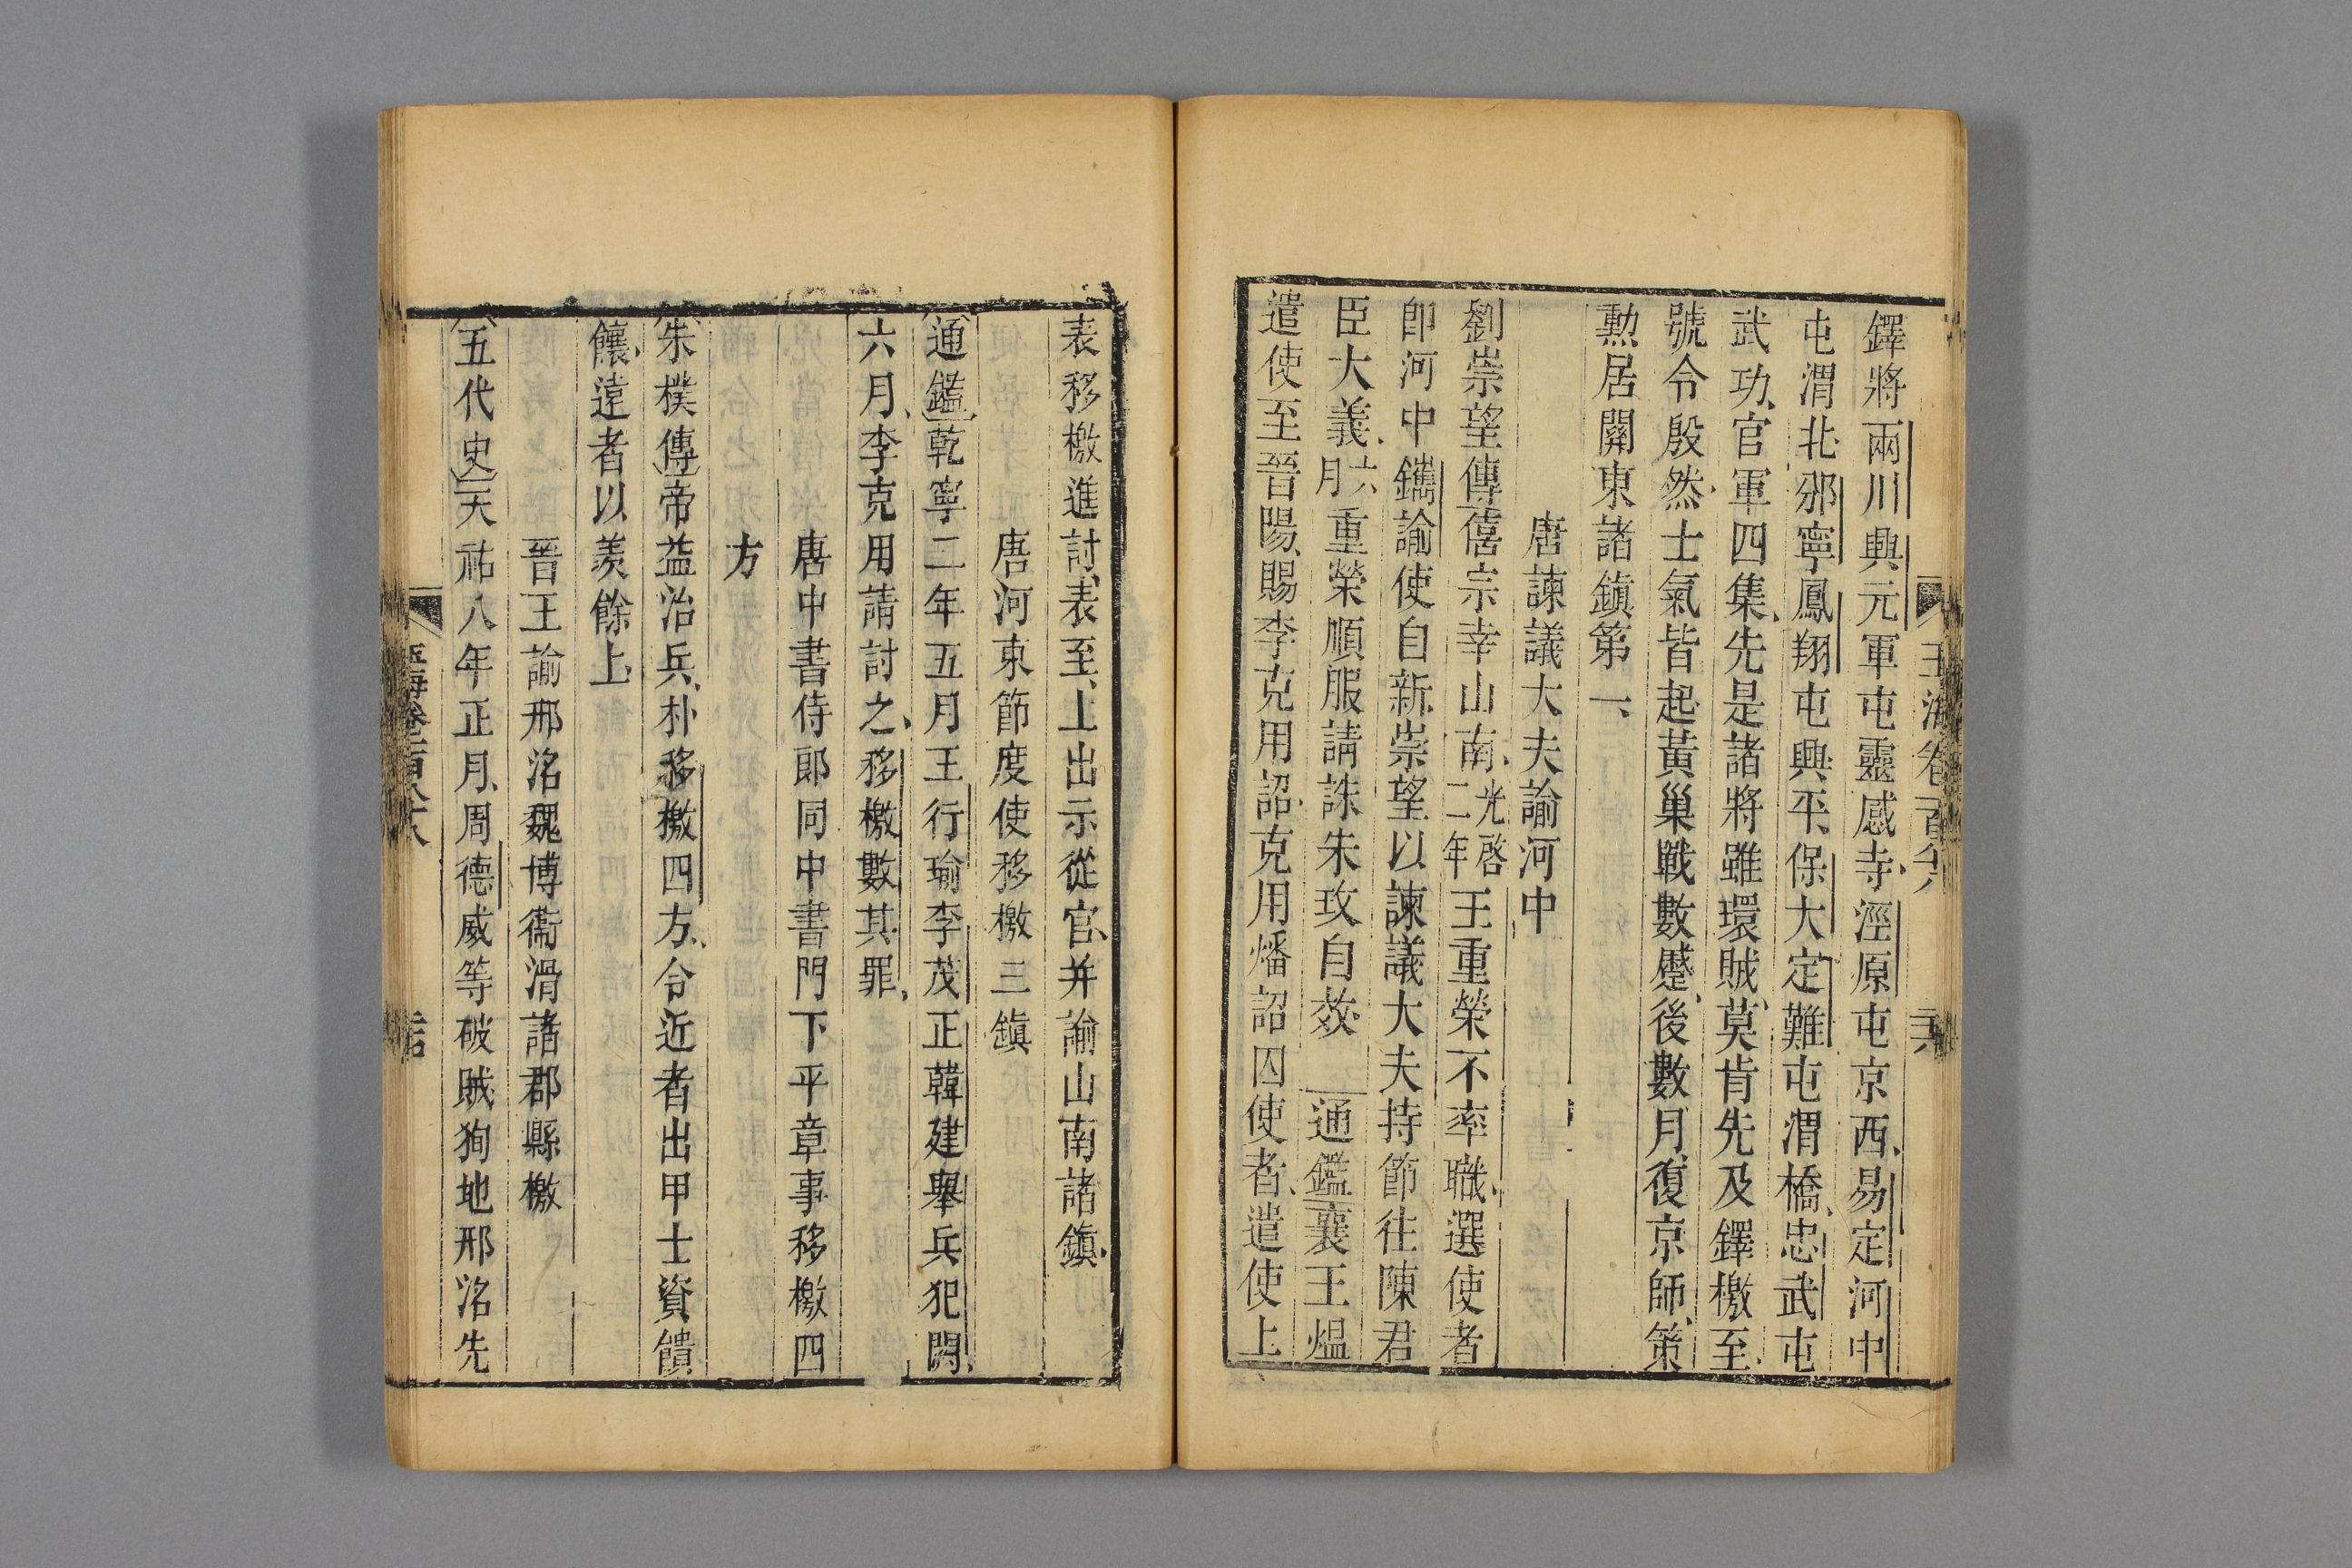 鐸將兩川興元軍屯靈感寺、涇原屯京西、易定河中
屯渭北、邠寧鳳翔屯興平、保大定難屯渭橋、忠武屯
武功、官軍四集、先是諸將雖環賊、莫肯先及鐸檄至、
號令殷然、士氣皆起、黃巢戰數蹙、後數月、復京師、策
勲居關東諸鎮第一、
唐諫議大夫諭河中
劉崇望傳僖宗幸山南、光啓二年王重榮不率職、選使者
卽河中鐫諭使自新、崇望以諫議大夫持節往陳君
臣大義、六月重榮順服請誅朱玫自效 通鑑襄王熅
遣使至晉陽、賜李克用詔、克用燔詔囚使者、遣使上
玉海卷百八六
表移檄進討、表至、上出示從官、并諭山南諸鎮、
唐河東節度使移檄三鎮
通鑑乾寧二年五月王行瑜李茂正韓建舉兵犯闕、
六月、李克用請討之、移檄數其罪、
唐中書侍郎同中書門下平章事移檄四
方
朱樸傳帝益治兵、朴移檄四方、令近者出甲士資饋
饟、遠者以羨餘上、
晉王諭邢洺魏博衞滑諸郡縣檄
五代史天祐八年正月、周德威等破賊狥地邢洺先